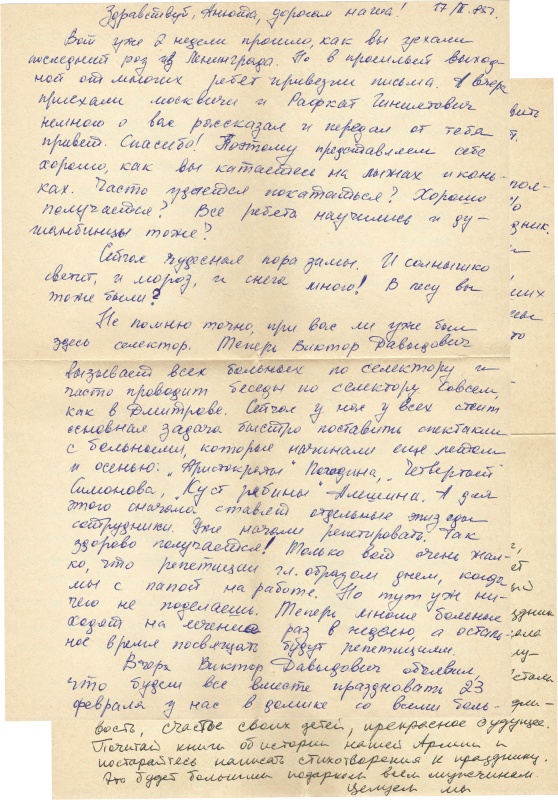 Здравствуй, Анюта, дорогая наша! 17/II 85г.
Вот уже 2 недели прошло, как вы уехали
последний раз из Ленинграда. Но в прошлый выход-
ной от многих ребят привезли письма. А вчера
приехали москвичи и
немного о вас рассказал и передал от тебя
привет. Спасибо! Поэтому представляем себе
хорошо, как вы катаетесь на лыжах и конь-
ках. Часто удается покататься? Хорошо
получается? Все ребята научились и ду-
шанбинцы тоже?
Сейчас чудесная пора зимы. И солнышко
светит, и мороз, и снега много! В лесу вы
тоже были?
Не помню точно, при вас ли уже был
здесь селектор. Теперь Виктор Давыдович
вызывает всех больных по селектору и
часто проводит беседы по селектору совсем,
как в Дмитрове. Сейчас у нас у всех стоит
основная задача быстро поставить спектакли
с больными, которые начинали еще летом
и осенью: „Аристократы" Погодина, „Четвертый"
Симонова, „Куст рябины" Алешина. А для
этого сначала ставят отдельные эпизоды
сотрудники. Уже начали репетировать. Так
здорово получается! Только вот очень жал-
ко, что репетиции гл. образом днем, когда
мы с папой на работе. Но тут уж ни-
чего не поделаешь. Теперь многие больные
ходят на лечение раз в неделю, а осталь-
ное время посвящать будут репетициям.
Вчера Виктор Давыдович объявил,
что будем все вместе праздновать 23
февраля у нас в домике со всеми боль-
вость, счастье своих детей, прекрасное будущее.
Почитай книги об истории нашей Армии и
постарайтесь написать стихотворения к празднику.
Это будет большим подарком всем мужчинам.
Целуем мы